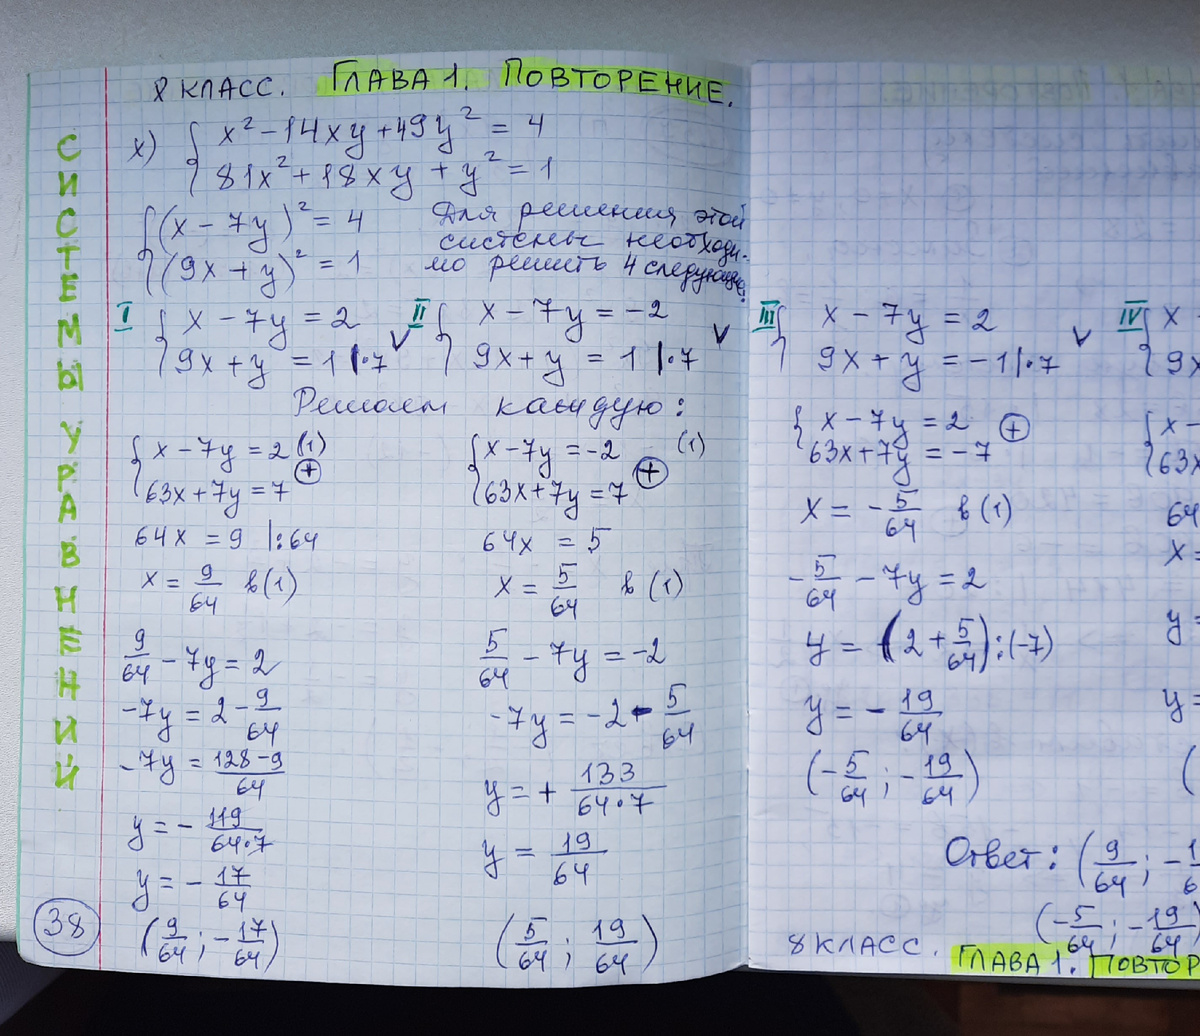 8 КЛАСС. ГЛАВА 1. ПОВТОРЕНИЕ.
СИСТЕМЫ УРАВНЕНИЙ
х) { x² - 14xy + 49y² = 4
81x² + 18xy + y² = 1
{ (x - 7y)² = 4
(9x + y)² = 1
Для решения этой
системы необходи-
мо решить 4 следующие:
I { x - 7y = 2
9x + y = 1 |·7 V
II { x - 7y = -2
9x + y = 1 |·7 V
Решаем каждую:
{ x - 7y = 2 (1)
63x + 7y = 7 ⊕
64x = 9 |:64
x = 9/64 в (1)
9/64 - 7y = 2
-7y = 2 - 9/64
-7y = (128 - 9)/64
y = - 119/(64·7)
y = - 17/64
(9/64; -17/64)
{ x - 7y = -2 (1)
63x + 7y = 7 ⊕
64x = 5
x = 5/64 в (1)
5/64 - 7y = -2
-7y = -2 - 5/64
y = + 133/(64·7)
y = 19/64
(5/64; 19/64)
38
III { x - 7y = 2
9x + y = -1 |·7 V
{ x - 7y = 2
63x + 7y = -7 ⊕
x = - 5/64 в (1)
- 5/64 - 7y = 2
y = (2 + 5/64) : (-7)
y = - 19/64
(-5/64; -19/64)
IV { x
9x
{ x -
63x
64
x =
y =
y =
(
Ответ: (9/64; -1
(-5/64; -19/64)
8 КЛАСС. ГЛАВА 1. ПОВТОР